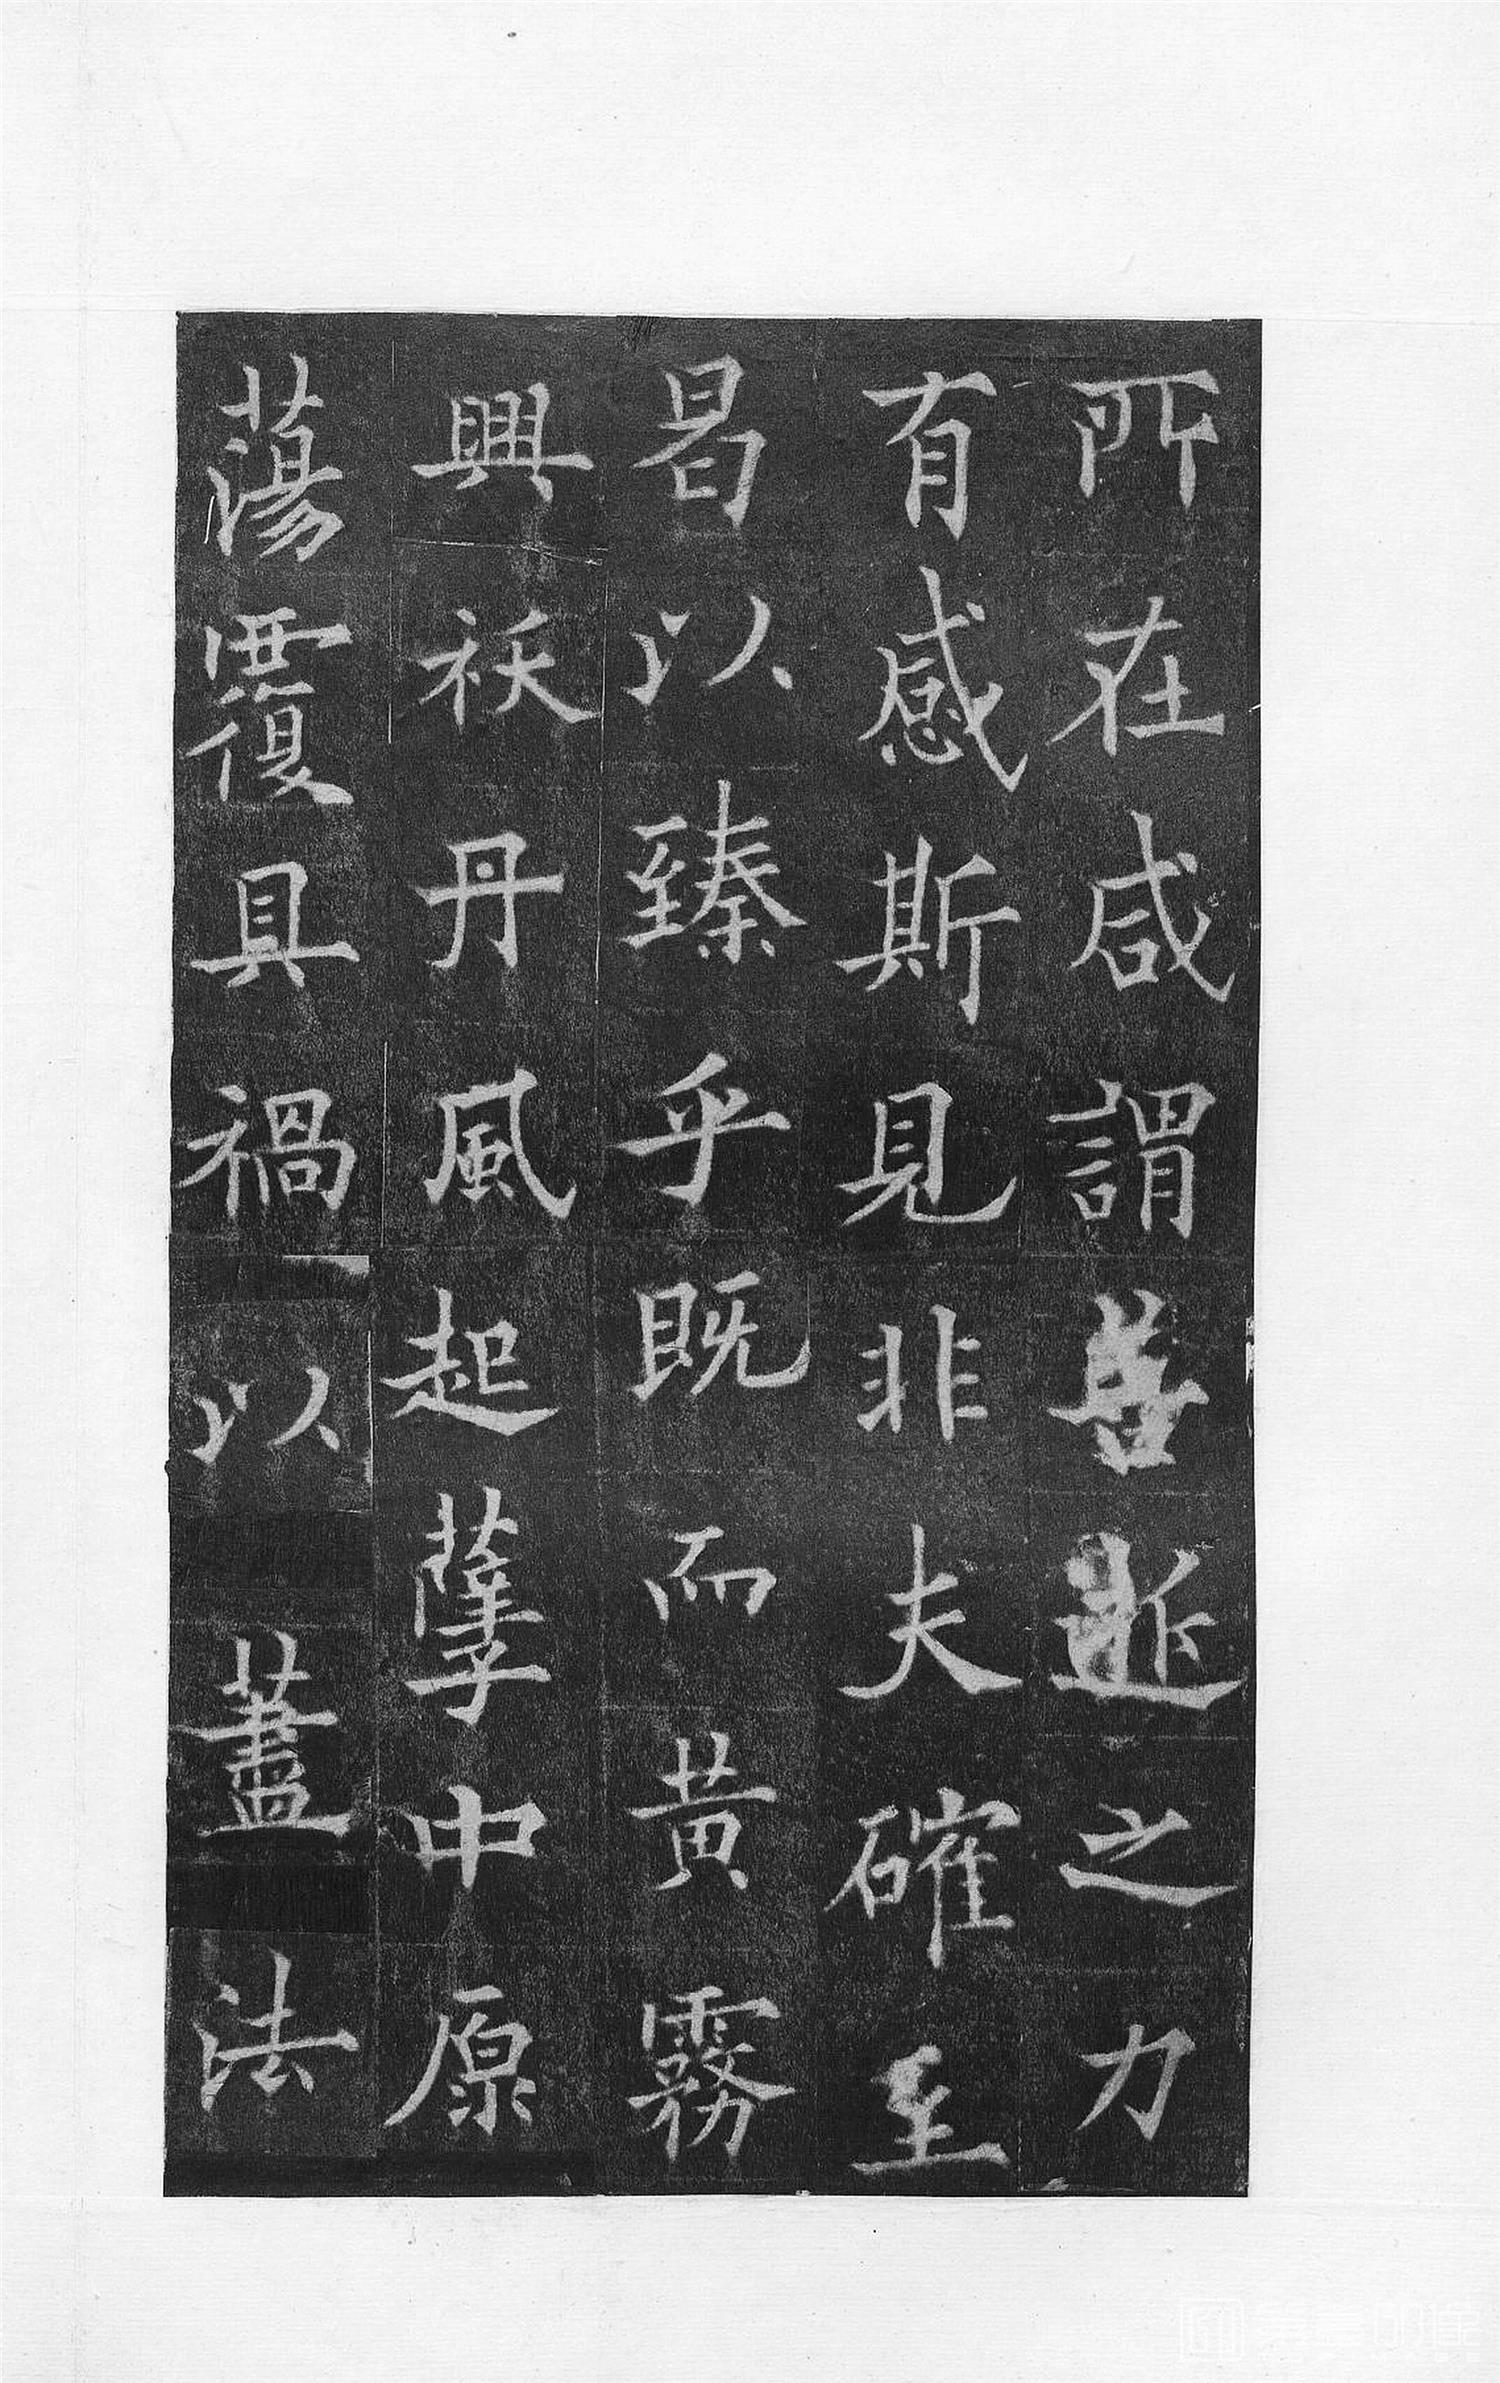 所在咸謂善逝之力
有感斯見非夫確至
曷以臻乎既而黄霧
興祅丹風起孽中原
蕩覆具禍以藎法